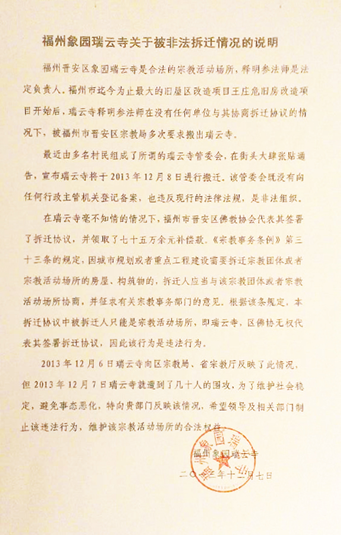 福州象园瑞云寺关于被非法拆迁情况的说明
福州晋安区象园瑞云寺是合法的宗教活动场所，释明参法师是法
定负责人。福州市迄今为止最大的旧屋区改造项目王庄危旧房改造项
目开始后，瑞云寺释明参法师在没有任何单位与其协商拆迁协议的情
况下，被福州市晋安区宗教局多次要求搬出瑞云寺。
最近由多名村民组成了所谓的瑞云寺管委会，在街头大肆张贴通
告，宣布瑞云寺将于2013年12月8日进行搬迁。该管委会既没有向
任何行政主管机关登记备案，也违反现行的法律法规，是非法组织。
在瑞云寺毫不知情的情况下，福州市晋安区佛教协会代表其签署
了拆迁协议，并领取了七十五万余元补偿款。《宗教事务条例》第三
十三条的规定，因城市规划或者重点工程建设需要拆迁宗教团体或者
宗教活动场所的房屋、构筑物的，拆迁人应当与该宗教团体或者宗教
活动场所协商，并征求有关宗教事务部门的意见。根据该条规定，本
拆迁协议中被拆迁人只能是宗教活动场所，即瑞云寺，区佛协无权代
表其签署拆迁协议，因此该行为是违法行为。
2013年12月6日瑞云寺向区宗教局、省宗教厅反映了此情况，
但2013年12月7日瑞云寺就遭到了几十人的围攻，为了维护社会稳
定，避免事态恶化，特向贵部门反映该情况，希望领导及相关部门制
止该违法行为，维护该宗教活动场所的合法权益。
福州象园瑞云寺
二〇一三年十二月七日